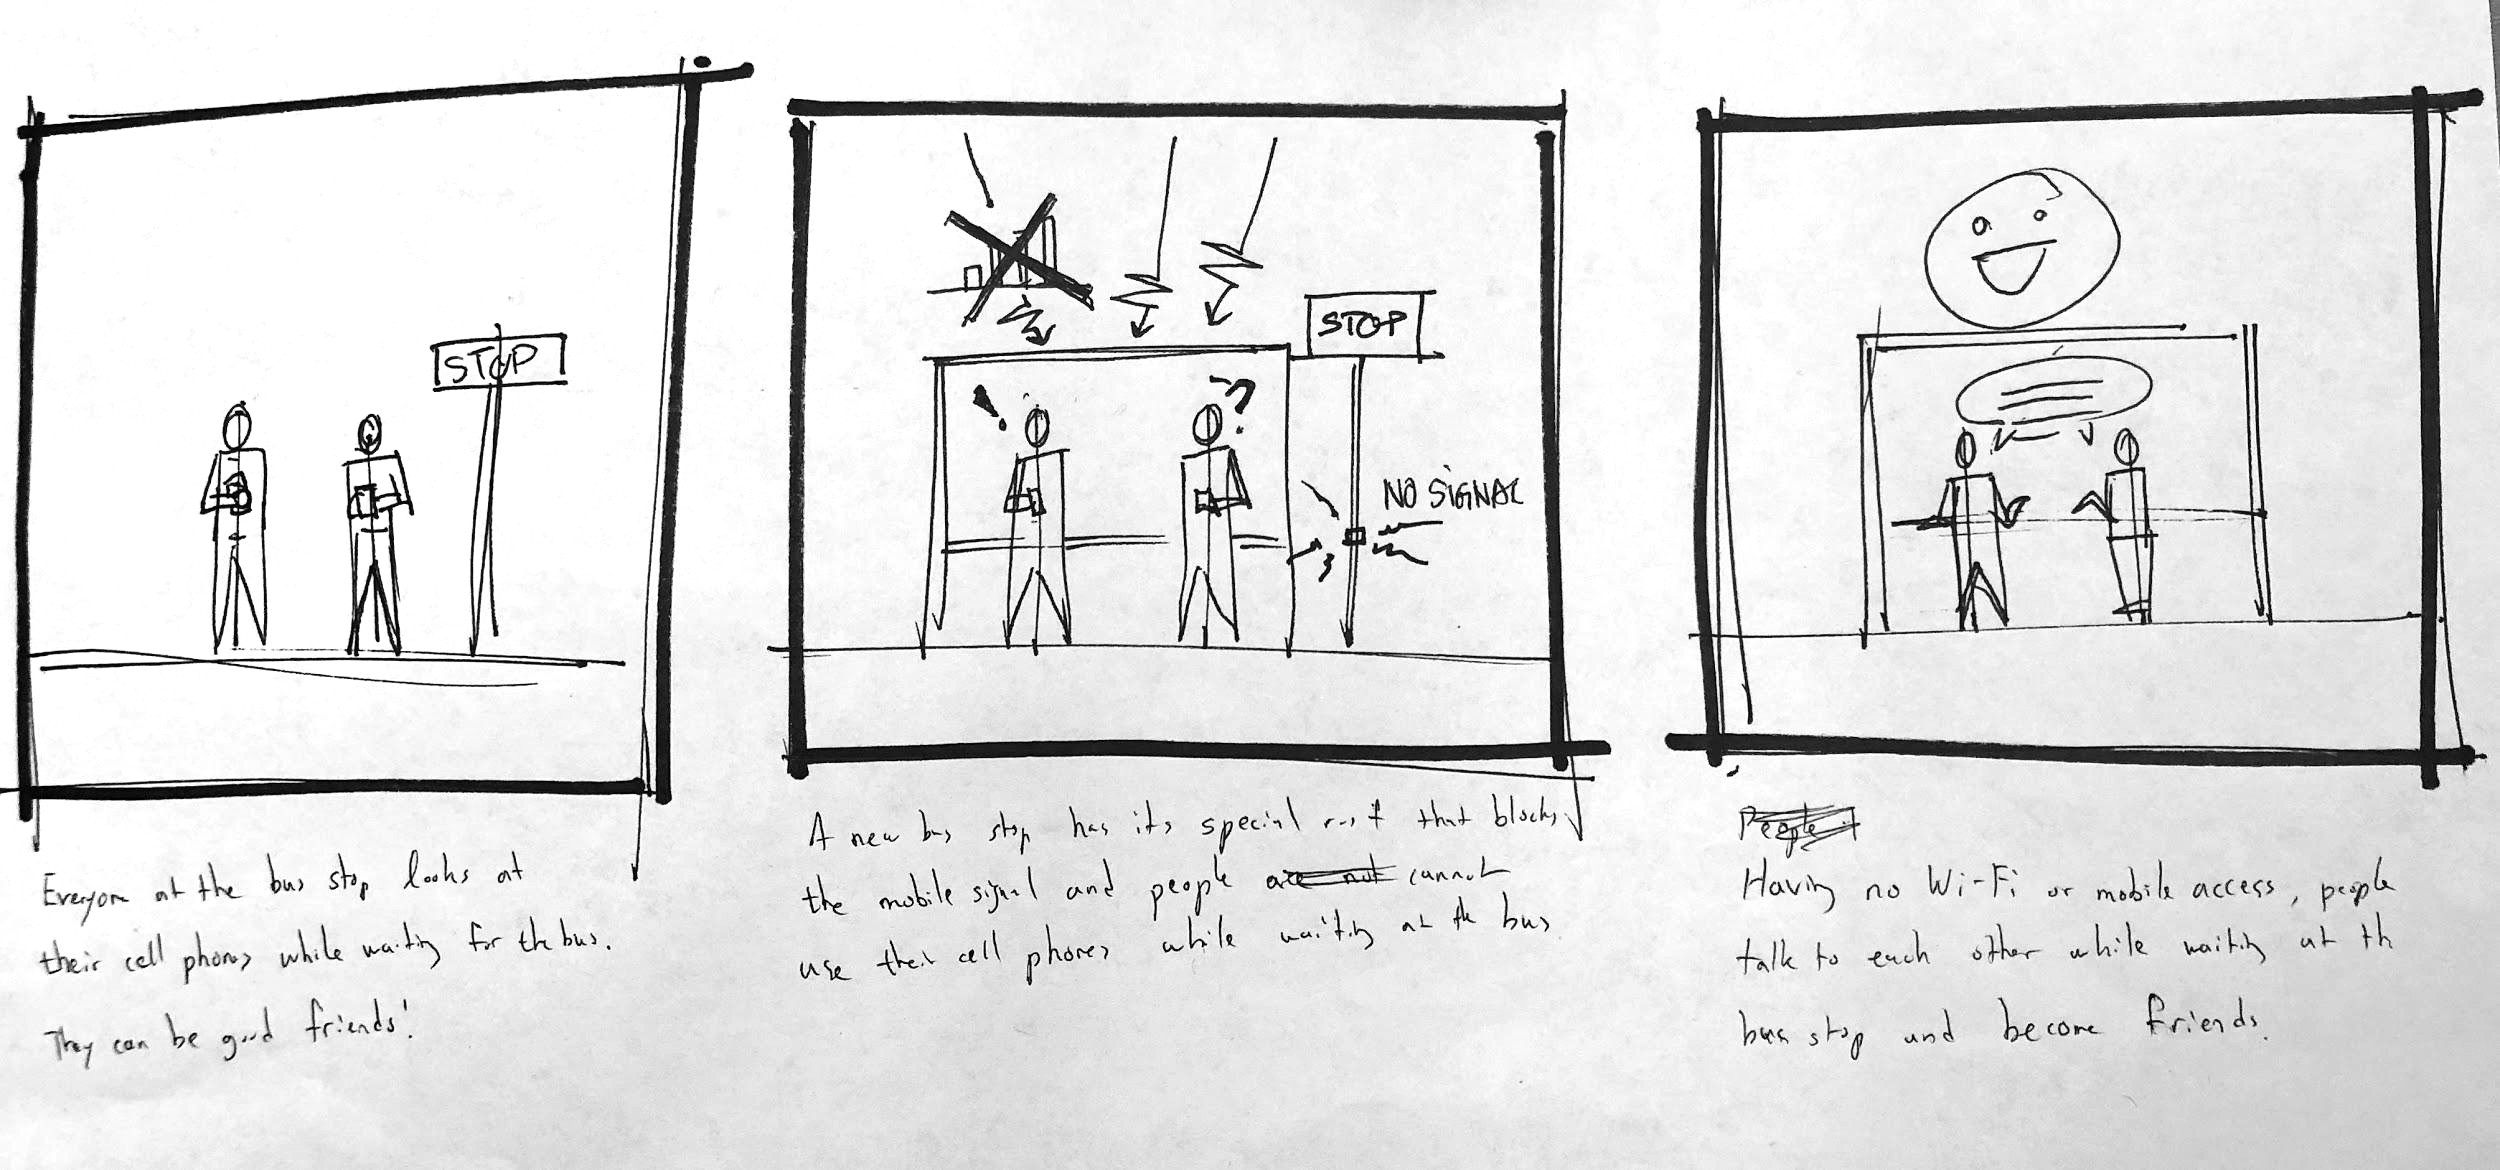 STOP
Everyone at the bus stop looks at
their cell phones while waiting for the bus.
They can be good friends!
!
?
STOP
NO SIGNAL
A new bus stop has its special roof that blocks
the mobile signal and people are not cannot
use their cell phones while waiting at the bus
People
Having no Wi-Fi or mobile access, people
talk to each other while waiting at th
bus stop and become friends.